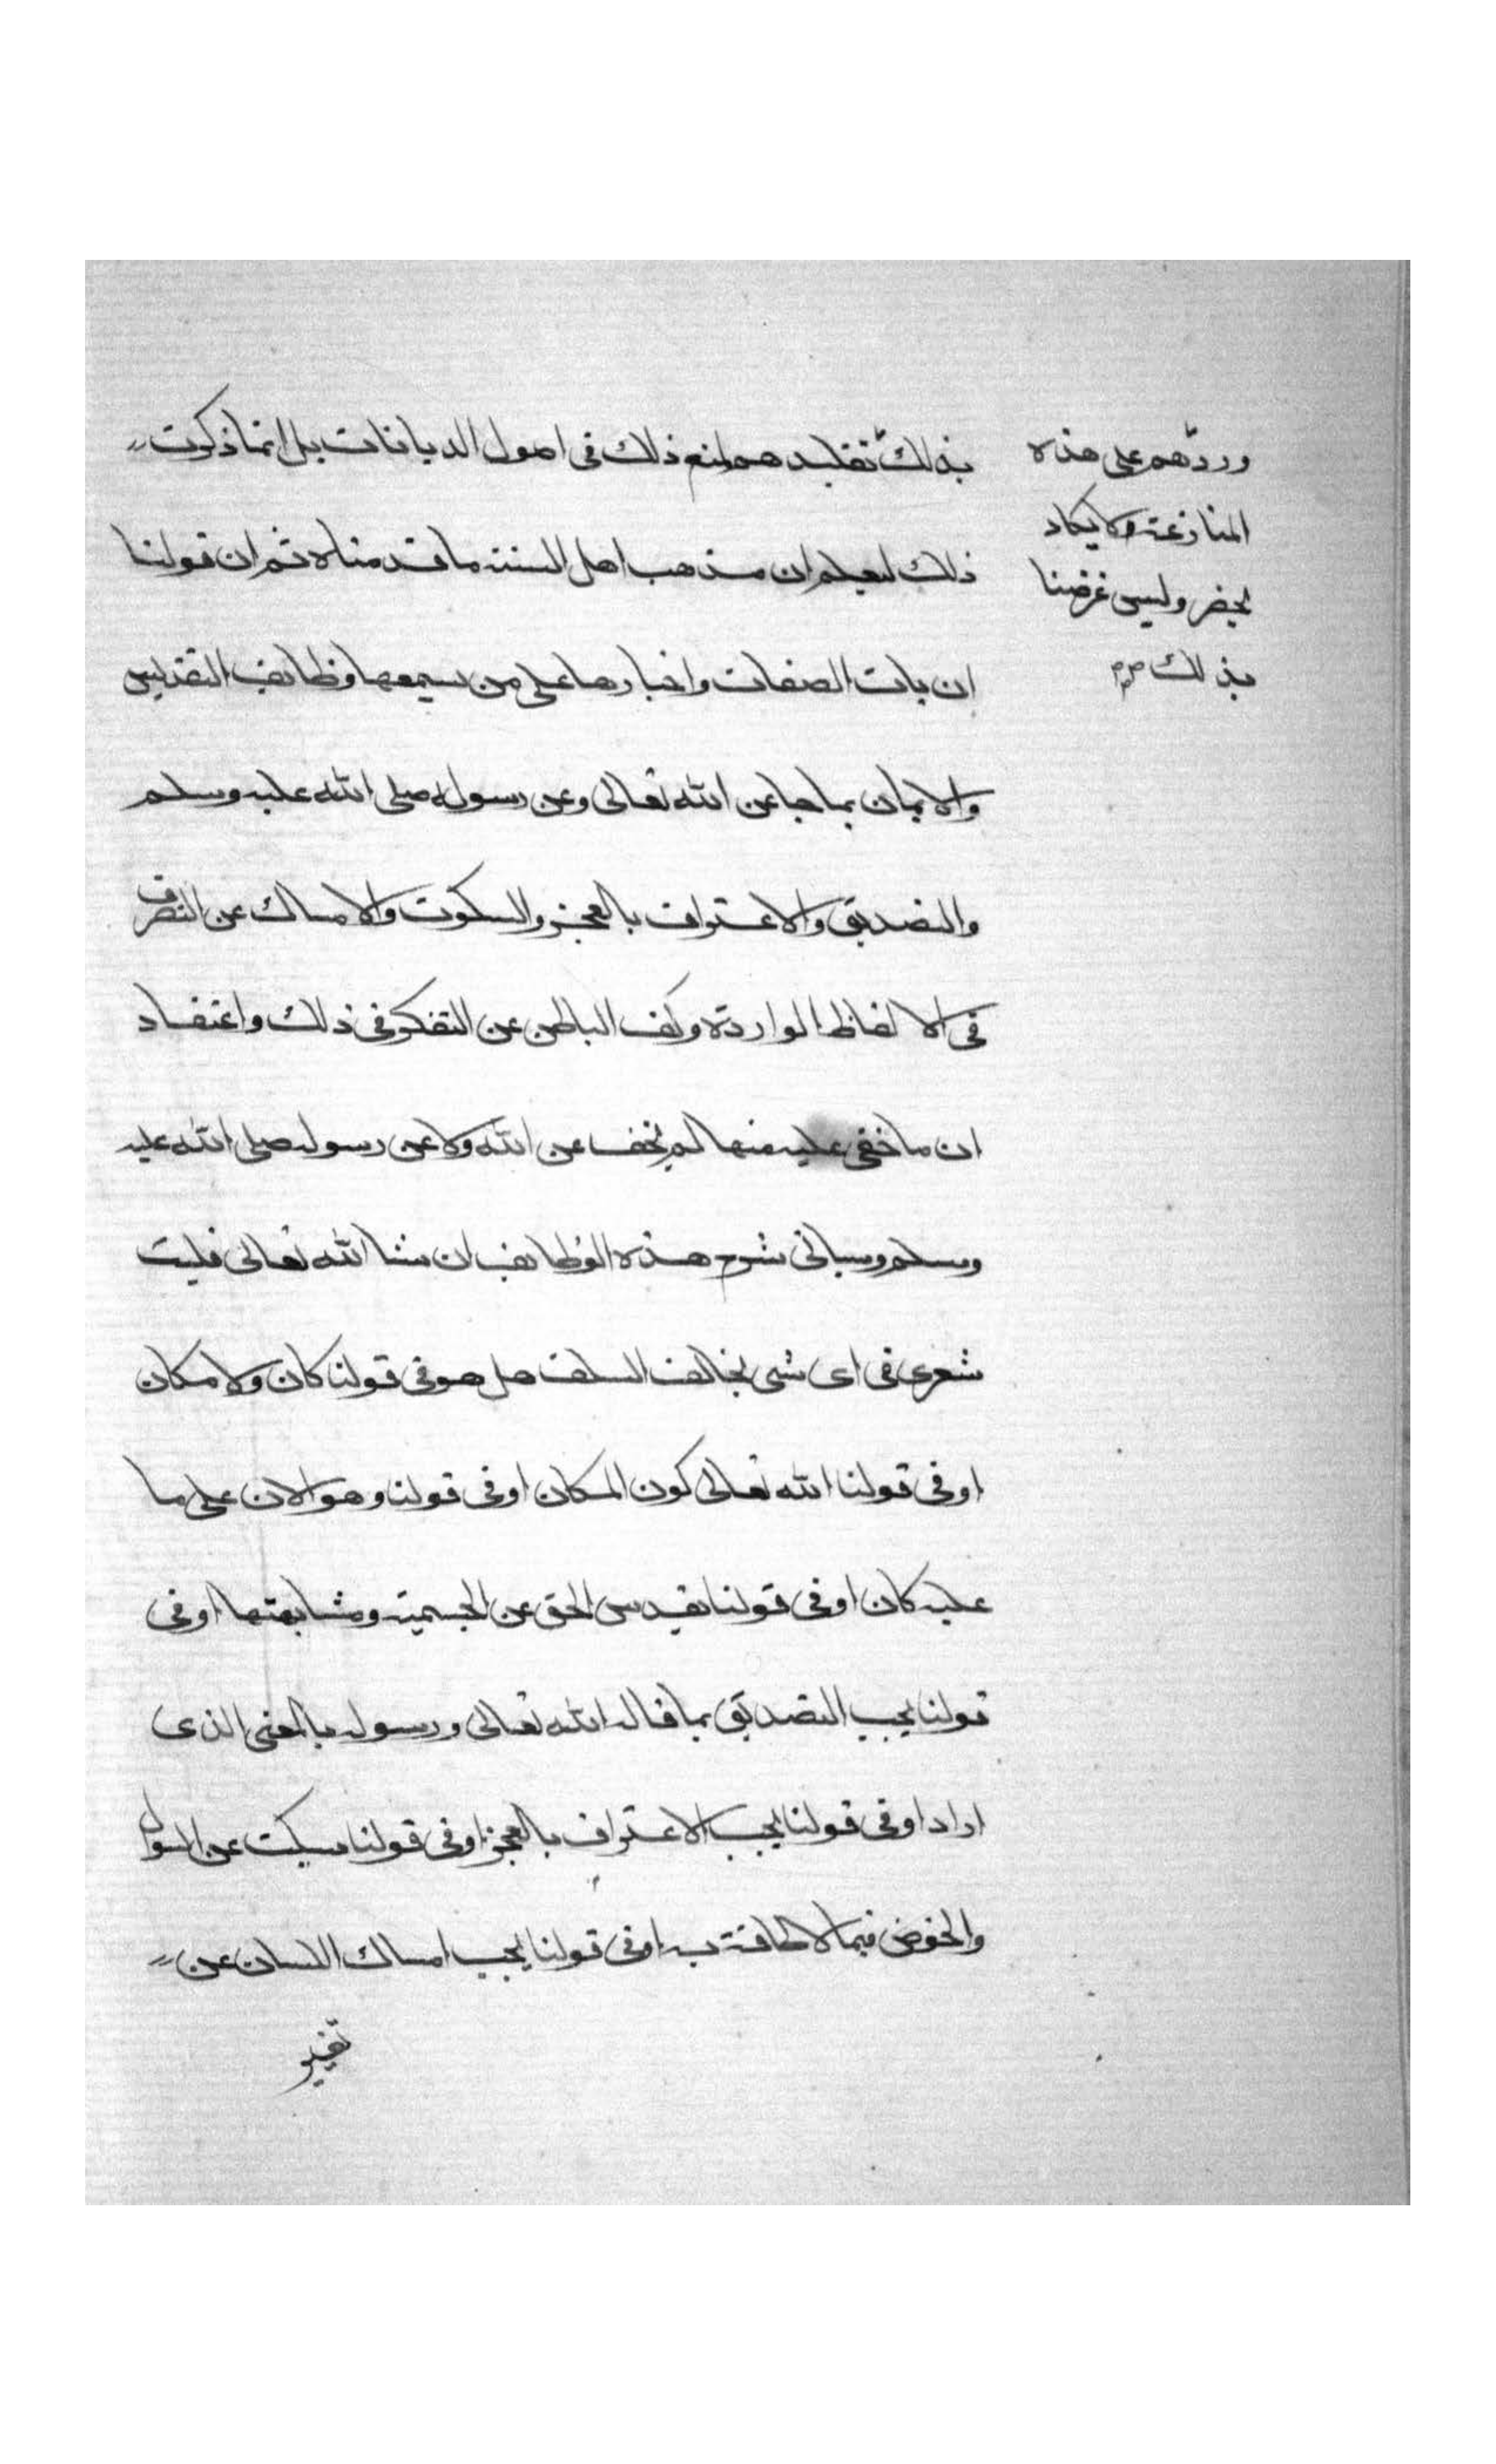 وردهم على هذه
المنازعة ولا يكاد
يحضر وليس غرضنا
بذلك صح
بذلك تقليدهم لمنع ذلك فى اصول الديانات بل انما ذكرت
ذلك ليعلم ان مذهب اهل السنة ما قدمناه ثم ان قولنا
ان بات الصفات واخبارها على من سمعها وظايف التقديس
والايمان بما جا عن الله تعالى وعن رسوله صلى الله عليه وسلم
والتصديق والاعتراف بالعجز والسكوت والامساك عن التصرف
فى الالفاظ الواردة وكف الباطن عن التفكر فى ذلك واعتقاد
ان ما خفى عليه منها لم يخف عن الله ولا عن رسوله صلى الله عليه
وسلم وسياتى شرح هذه الوظايف ان شا الله تعالى فليت
شعرى فى اى شى يخالف السلف هل هو فى قولنا كان ولا مكان
او فى قولنا الله تعالى كون المكان او فى قولنا وهو الان على ما
عليه كان او فى قولنا تقدس الحق عن الجسمية ومشابهتها او فى
قولنا يجب التصديق بما قاله الله تعالى ورسوله بالمعنى الذى
اراد او فى قولنا يجب الاعتراف بالعجز او فى قولنا يسكت عن السوال
والخوض فيما لا طاقة به او فى قولنا يجب امساك اللسان عن
تغيير